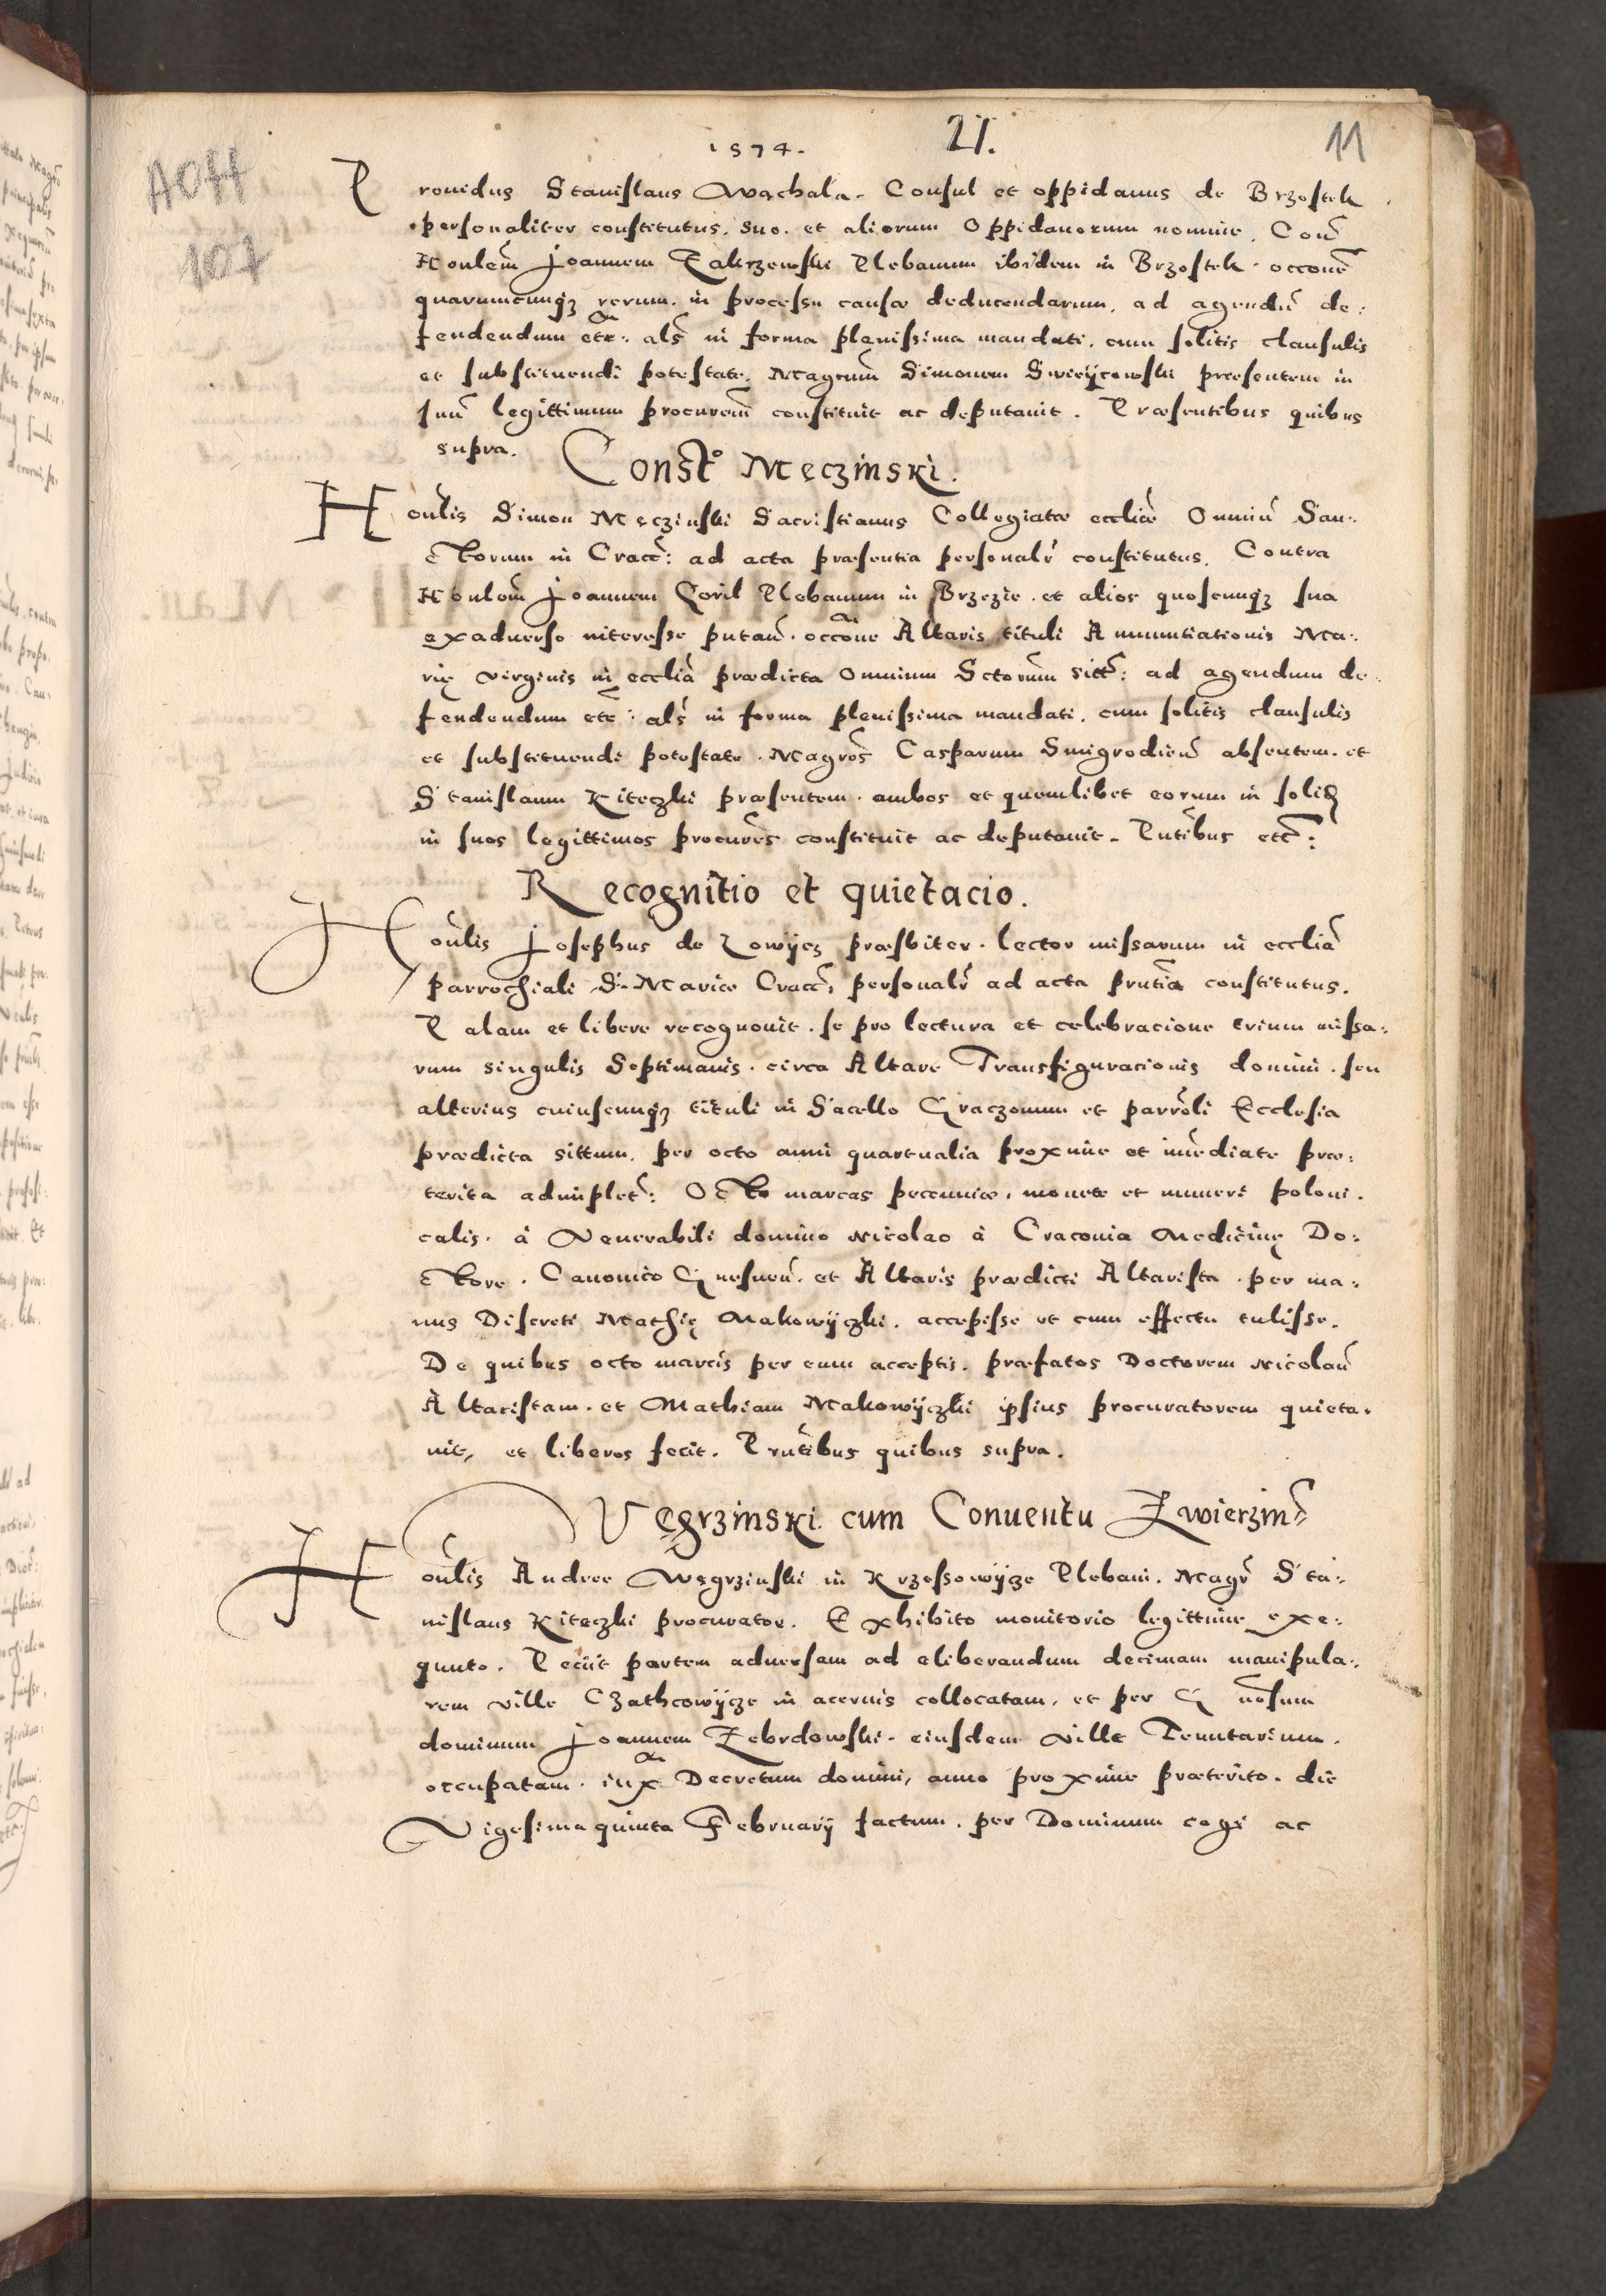 1574. 21. 11
A077
107
Prouidus Stanislaus Wachala. Consul et oppidanus de Brzostek
personaliter constitutus. suo. et aliorum Oppidanorum nomine. Con͂
Honlem͂ Joannem Zakrzewski Plebanum ibidem in Brzostek. occone͂
quarumcunqꝫ rerum. in processu causæ deducendarum. ad agendu͂ de:
fendendum etc͂: als͂ in forma plenissima mandati. cum solitis clausulis
et substituendi potestate. Magrum͂ Simonem præsentem in
suu͂ legittimum procurem͂ constituit ac deputauit. Præsentibus quibus
supra.
Const° Męczinski.
Hon͂lis Simon Męczinski Sacristianus Collegiatæ eccliæ͂ Omniu͂ San:
ctorum in Cracc͂: ad acta præsentia personalr͂ constitutus. Contra
Honlem͂ Joannem Plebanum in Brzezie. et alios quoscunqꝫ sua
exaduerso interesse putan͂. occone͂ Altaris tituli Annuntiationis Ma:
rię virginis in ecclia͂ prædicta Omnium Sctorum͂ sitt͂: ad agendum de:
fendendum etc͂: als͂ in forma plenissima mandati. cum solitis clausulis
et substituendi potestate. Magros͂ Casparum Smigrodien͂ absentem. et
Stanislaum Kiteczki præsentem. ambos et quemlibet eorum in solid͂
in suos legittimos procures͂ constituit ac deputauit. Pntibus͂ etc͂:
Recognitio et quietacio.
Hon͂lis Josephus de Lowÿcz præsbiter. lector missarum in ecclia͂
parrochiali S. Mariæ Cracc͂: personalr͂ ad acta prntia͂ constitutus.
Palam et libere recognouit. se pro lectura et celebracione trium missa:
rum singulis Septimanis. circa Altare Transfiguracionis domini. seu
alterius cuiuscunqꝫ tituli in Sacello Graczorum et parroli͂ Ecclesia
prædicta sittum. per octo anni quartualia proxime et im͂ediate præ:
terita adimplet͂: Octo marcas pecuniæ. monetæ et numeri poloni:
calis. à Venerabili domino Nicolao à Craconia Medicinę Do:
ctore. Canonico Gnesnen͂. et Altaris prædicti Altarista. per ma:
nus Discreti Mathię Makowÿczki. accepisse et cum effectu tulisse.
De quibus octo marcis per eum acceptis. præfatos Doctorem Nicolau͂
Altaristam. et Mathiam Makowÿczki ipsius procuratorem quieta:
uit, et liberos fecit. Prntibus͂ quibus supra.
Vęgrzinski cum Conuentu Zwierzin͂
Hon͂lis Andreæ Węgrzinski in Krzessowÿcze Plebani. Magr͂ Sta:
nislaus Kiteczki procurator. Exhibito monitorio legittime exe:
quuto. Peciit partem aduersam ad eliberandum decimam manipula:
rem ville Czathcowÿcze in aceruis collocatam. et per G nosum͂
dominum Joannem Zebrdowski. eiusdem ville Tenutarium.
occupatam. iux͂ Decretum domini, anno proxime præterito. die
Vigesima quinta Februarÿ factum. per Dominum cogi ac